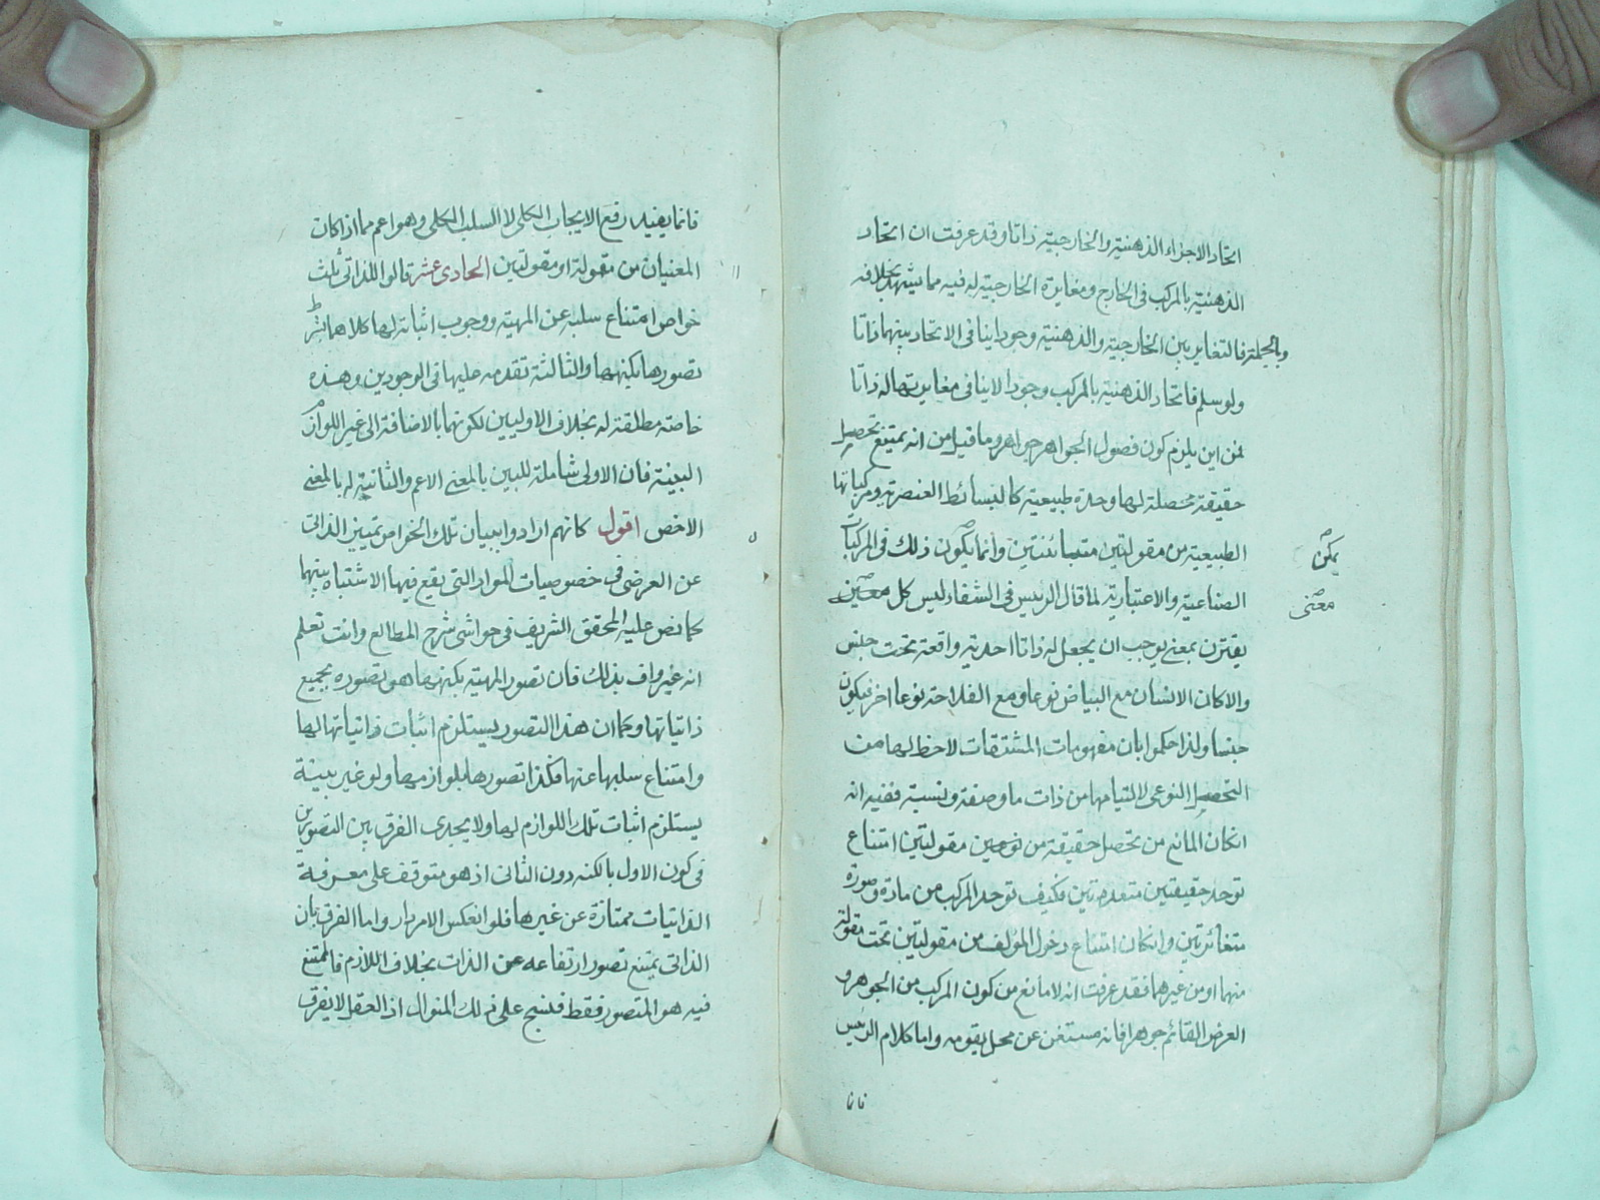 اتحاد الاجزاء الذهنية والخارجية ذاتا وقد عرفت ان اتحاد
الذهنية بالمركب فى الخارج ومغايرة الخارجية له فيه مما يشهد بخلافه
وبالجملة فالتغاير بين الخارجية والذهنية وجودا ينافى الاتحاد بينهما ذاتا
ولو سلم فاتحاد الذهنية بالمركب وجودا لا ينافى مغايرتها له ذاتا
فمن اين يلزم كون فصول الجواهر جواهر وما قيل من انه يمتنع تحصل
حقيقة محصلة لها وحدة طبيعية كالبسائط العنصرية ومركباتها
الطبيعية من مقولتين متباينتين وانما يكون ذلك فى المركبات
الصناعية والاعتبارية لما قال الرئيس فى الشفاء ليس كل معين
يقترن بمعنى يوجب ان يجعل له ذاتا احدية واقعة تحت جنس
والا كان الانسان مع البياض نوعا ومع الفلاحة نوعا اخر فيكون
جنسا ولذا حكموا بان مفهومات المشتقات لا حظ لها من
التحصل النوعى لالتيامها من ذات ما وصفة ونسبة ففيه انه
انكان المانع من تحصل حقيقة من نوعين مقولتين امتناع
توحد حقيقتين متعددتين فكيف توحد المركب من مادة وصورة
متغائرتين وانكان امتناع دخول المؤلف من مقولتين تحت مقولة
منهما او من غيرهما فقد عرفت انه لا مانع من كون المركب من الجوهر و
العرض القائم جوهرا فانه مستغن عن محل يقومه واما كلام الرئيس
يمكن
معنى
فانما
فانما يفيد رفع الايجاب الكلى لا السلب الكلى وهو اعم مما اذا كان
المعنيان من مقولة او مقولتين الحادى عشر قالوا للذاتى ثلث
خواص امتناع سلبه عن المهية ووجوب اثباته لها كلاهما بشرط
تصورها بكنهها والثالثة تقدمه عليها فى الوجودين وهذه
خاصة مطلقة له بخلاف الاوليين لكونهما بالاضافة الى غير اللوازم
البينة فان الاولى شاملة للبين بالمعنى الاعم والثانية له بالمعنى
الاخص اقول كانهم ارادوا ببيان تلك الخواص تمييز الذاتى
عن العرضى فى خصوصيات المواد التى يقع فيها الاشتباه بينهما
كما نص عليه المحقق الشريف فى حواشى شرح المطالع وانت تعلم
انه غير واف بذلك فان تصور المهية بكنهها هو تصوره بجميع
ذاتياتها وكما ان هذا التصور يستلزم اثبات ذاتياتها لها
وامتناع سلبها عنها فكذا تصورها بلوازمها ولو غير بينة
يستلزم اثبات تلك اللوازم لها ولا يجدى الفرق بين التصورين
فى كون الاول بالكنه دون الثانى اذ هو متوقف على معرفة
الذاتيات ممتازة عن غيرها فلو انعكس الامر دار واما الفرق بان
الذاتى يمتنع تصور ارتفاعه عن الذات بخلاف اللازم فالممتنع
فيه هو المتصور فقط فلنسج على ذلك المنوال اذ العقل لا يفرق